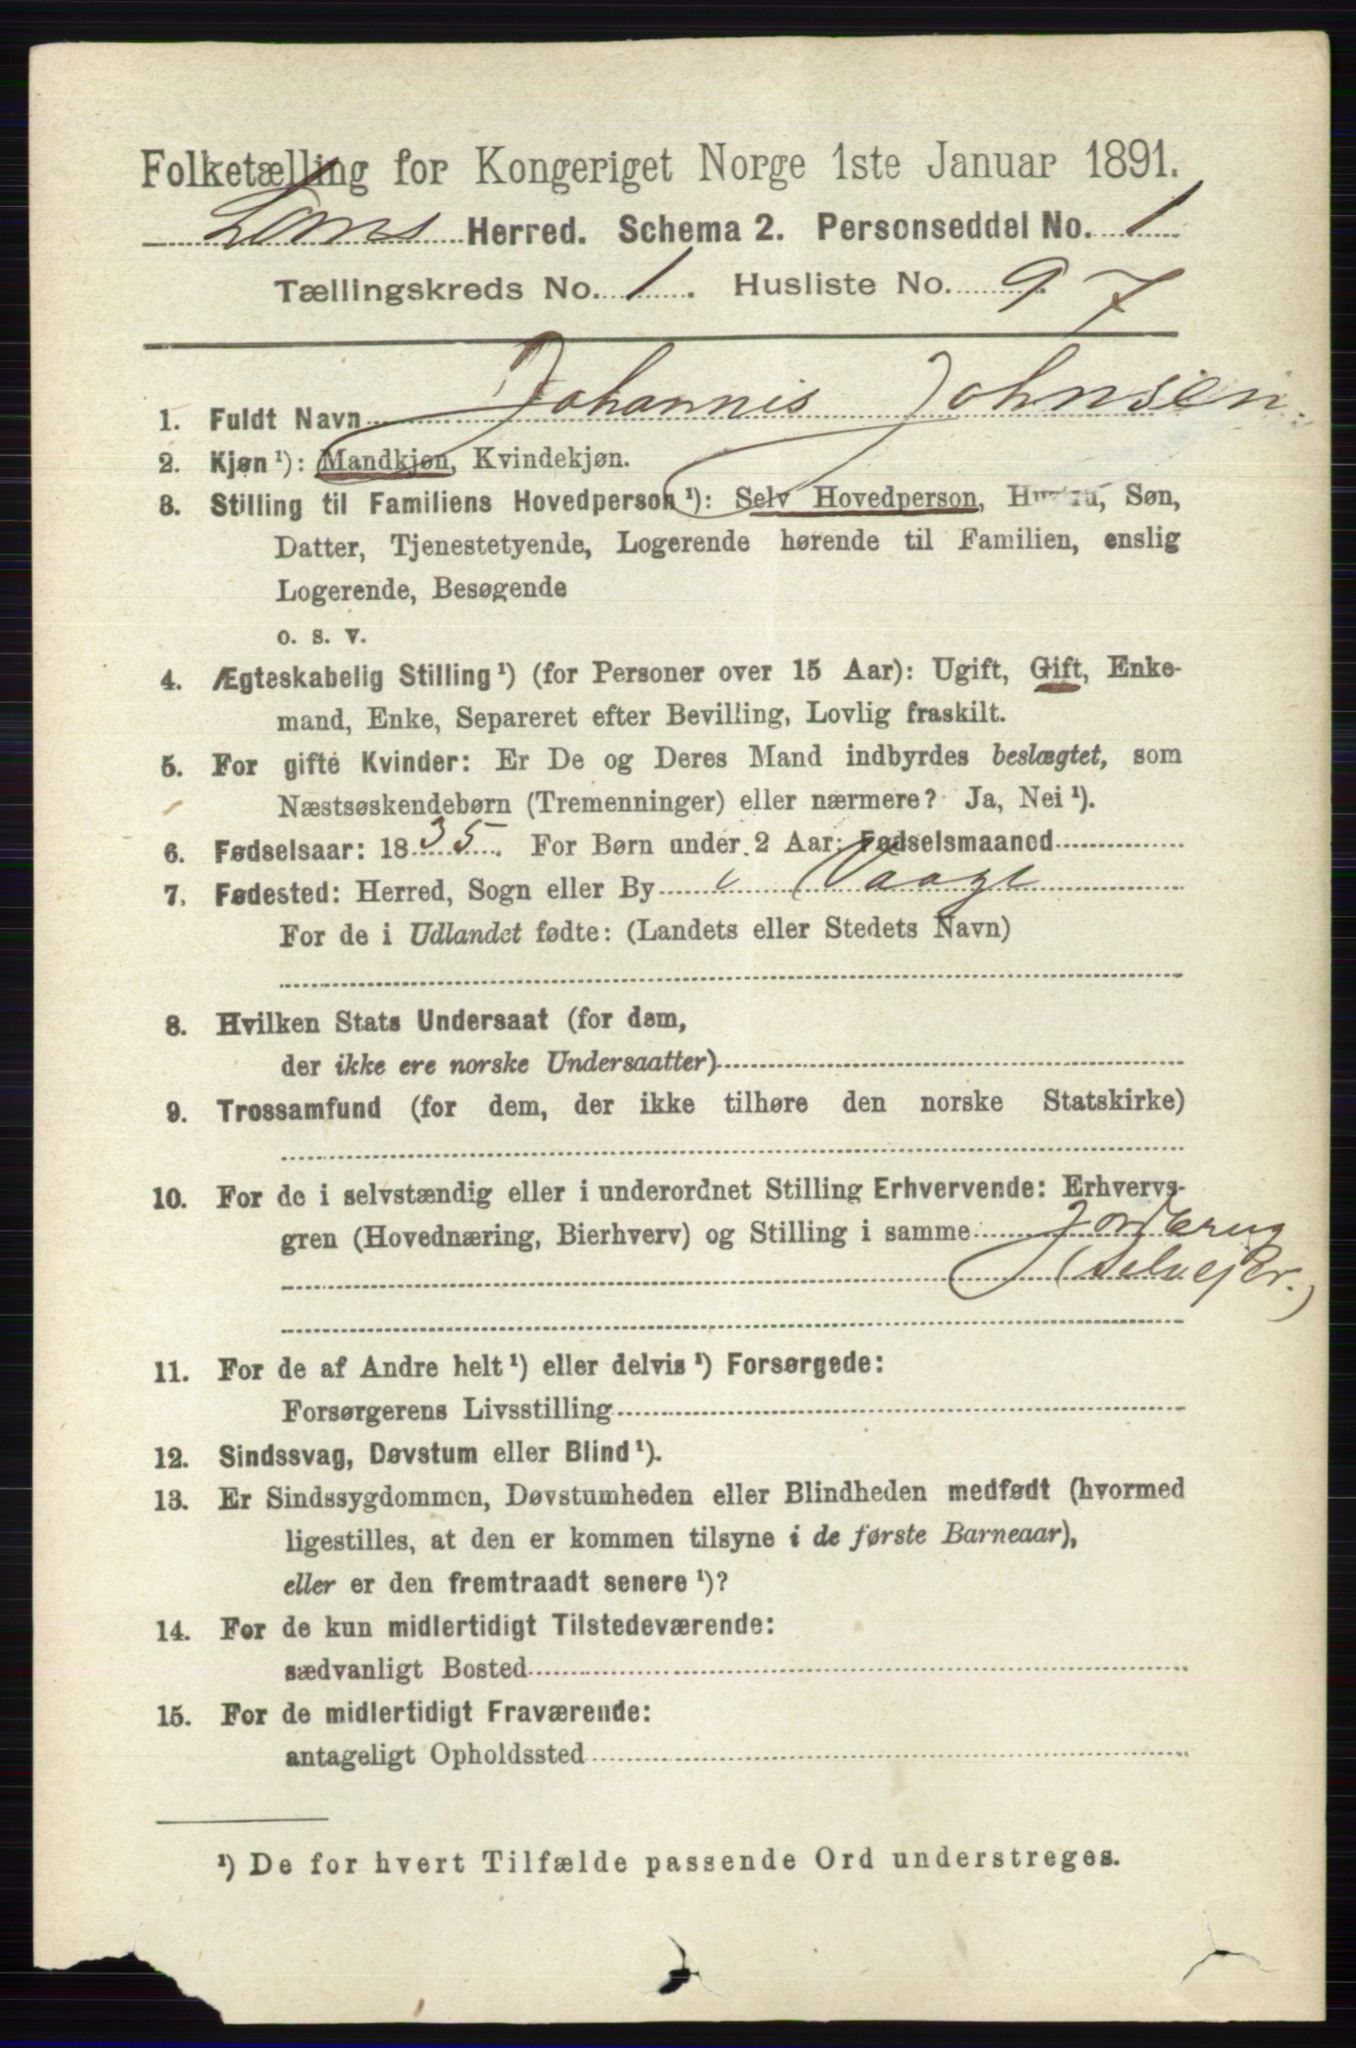 Folketælling for Kongeriget Norge 1ste Januar 1891.
Loms Herred. Schema 2. Personseddel No. 1
Tællingskreds No. 1. Husliste No. 97
1. Fuldt Navn Johannis Johnsen.
2. Kjøn ¹): Mandkjøn, Kvindekjøn.
3. Stilling til Familiens Hovedperson ¹): Selv Hovedperson, Hustru, Søn,
Datter, Tjenestetyende, Logerende hørende til Familien, enslig
Logerende, Besøgende
o. s. v.
4. Ægteskabelig Stilling ¹) (for Personer over 15 Aar): Ugift, Gift, Enke-
mand, Enke, Separeret efter Bevilling, Lovlig fraskilt.
5. For gifte Kvinder: Er De og Deres Mand indbyrdes beslægtet, som
Næstsøskendebørn (Tremenninger) eller nærmere? Ja, Nei ¹).
6. Fødselsaar: 1835. For Børn under 2 Aar: Fødselsmaaned
7. Fødested: Herred, Sogn eller By i Vaage
For de i Udlandet fødte: (Landets eller Stedets Navn)
8. Hvilken Stats Undersaat (for dem,
der ikke ere norske Undersaatter)
9. Trossamfund (for dem, der ikke tilhøre den norske Statskirke)
10. For de i selvstændig eller i underordnet Stilling Erhvervende: Erhvervs-
gren (Hovednæring, Bierhverv) og Stilling i samme Jordbrug
(selvejer.)
11. For de af Andre helt ¹) eller delvis ¹) Forsørgede:
Forsørgerens Livsstilling
12. Sindssvag, Døvstum eller Blind ¹).
13. Er Sindssygdommen, Døvstumheden eller Blindheden medfødt (hvormed
ligestilles, at den er kommen tilsyne i de første Barneaar),
eller er den fremtraadt senere ¹)?
14. For de kun midlertidigt Tilstedeværende:
sædvanligt Bosted
15. For de midlertidigt Fraværende:
antageligt Opholdssted
¹) De for hvert Tilfælde passende Ord understreges.